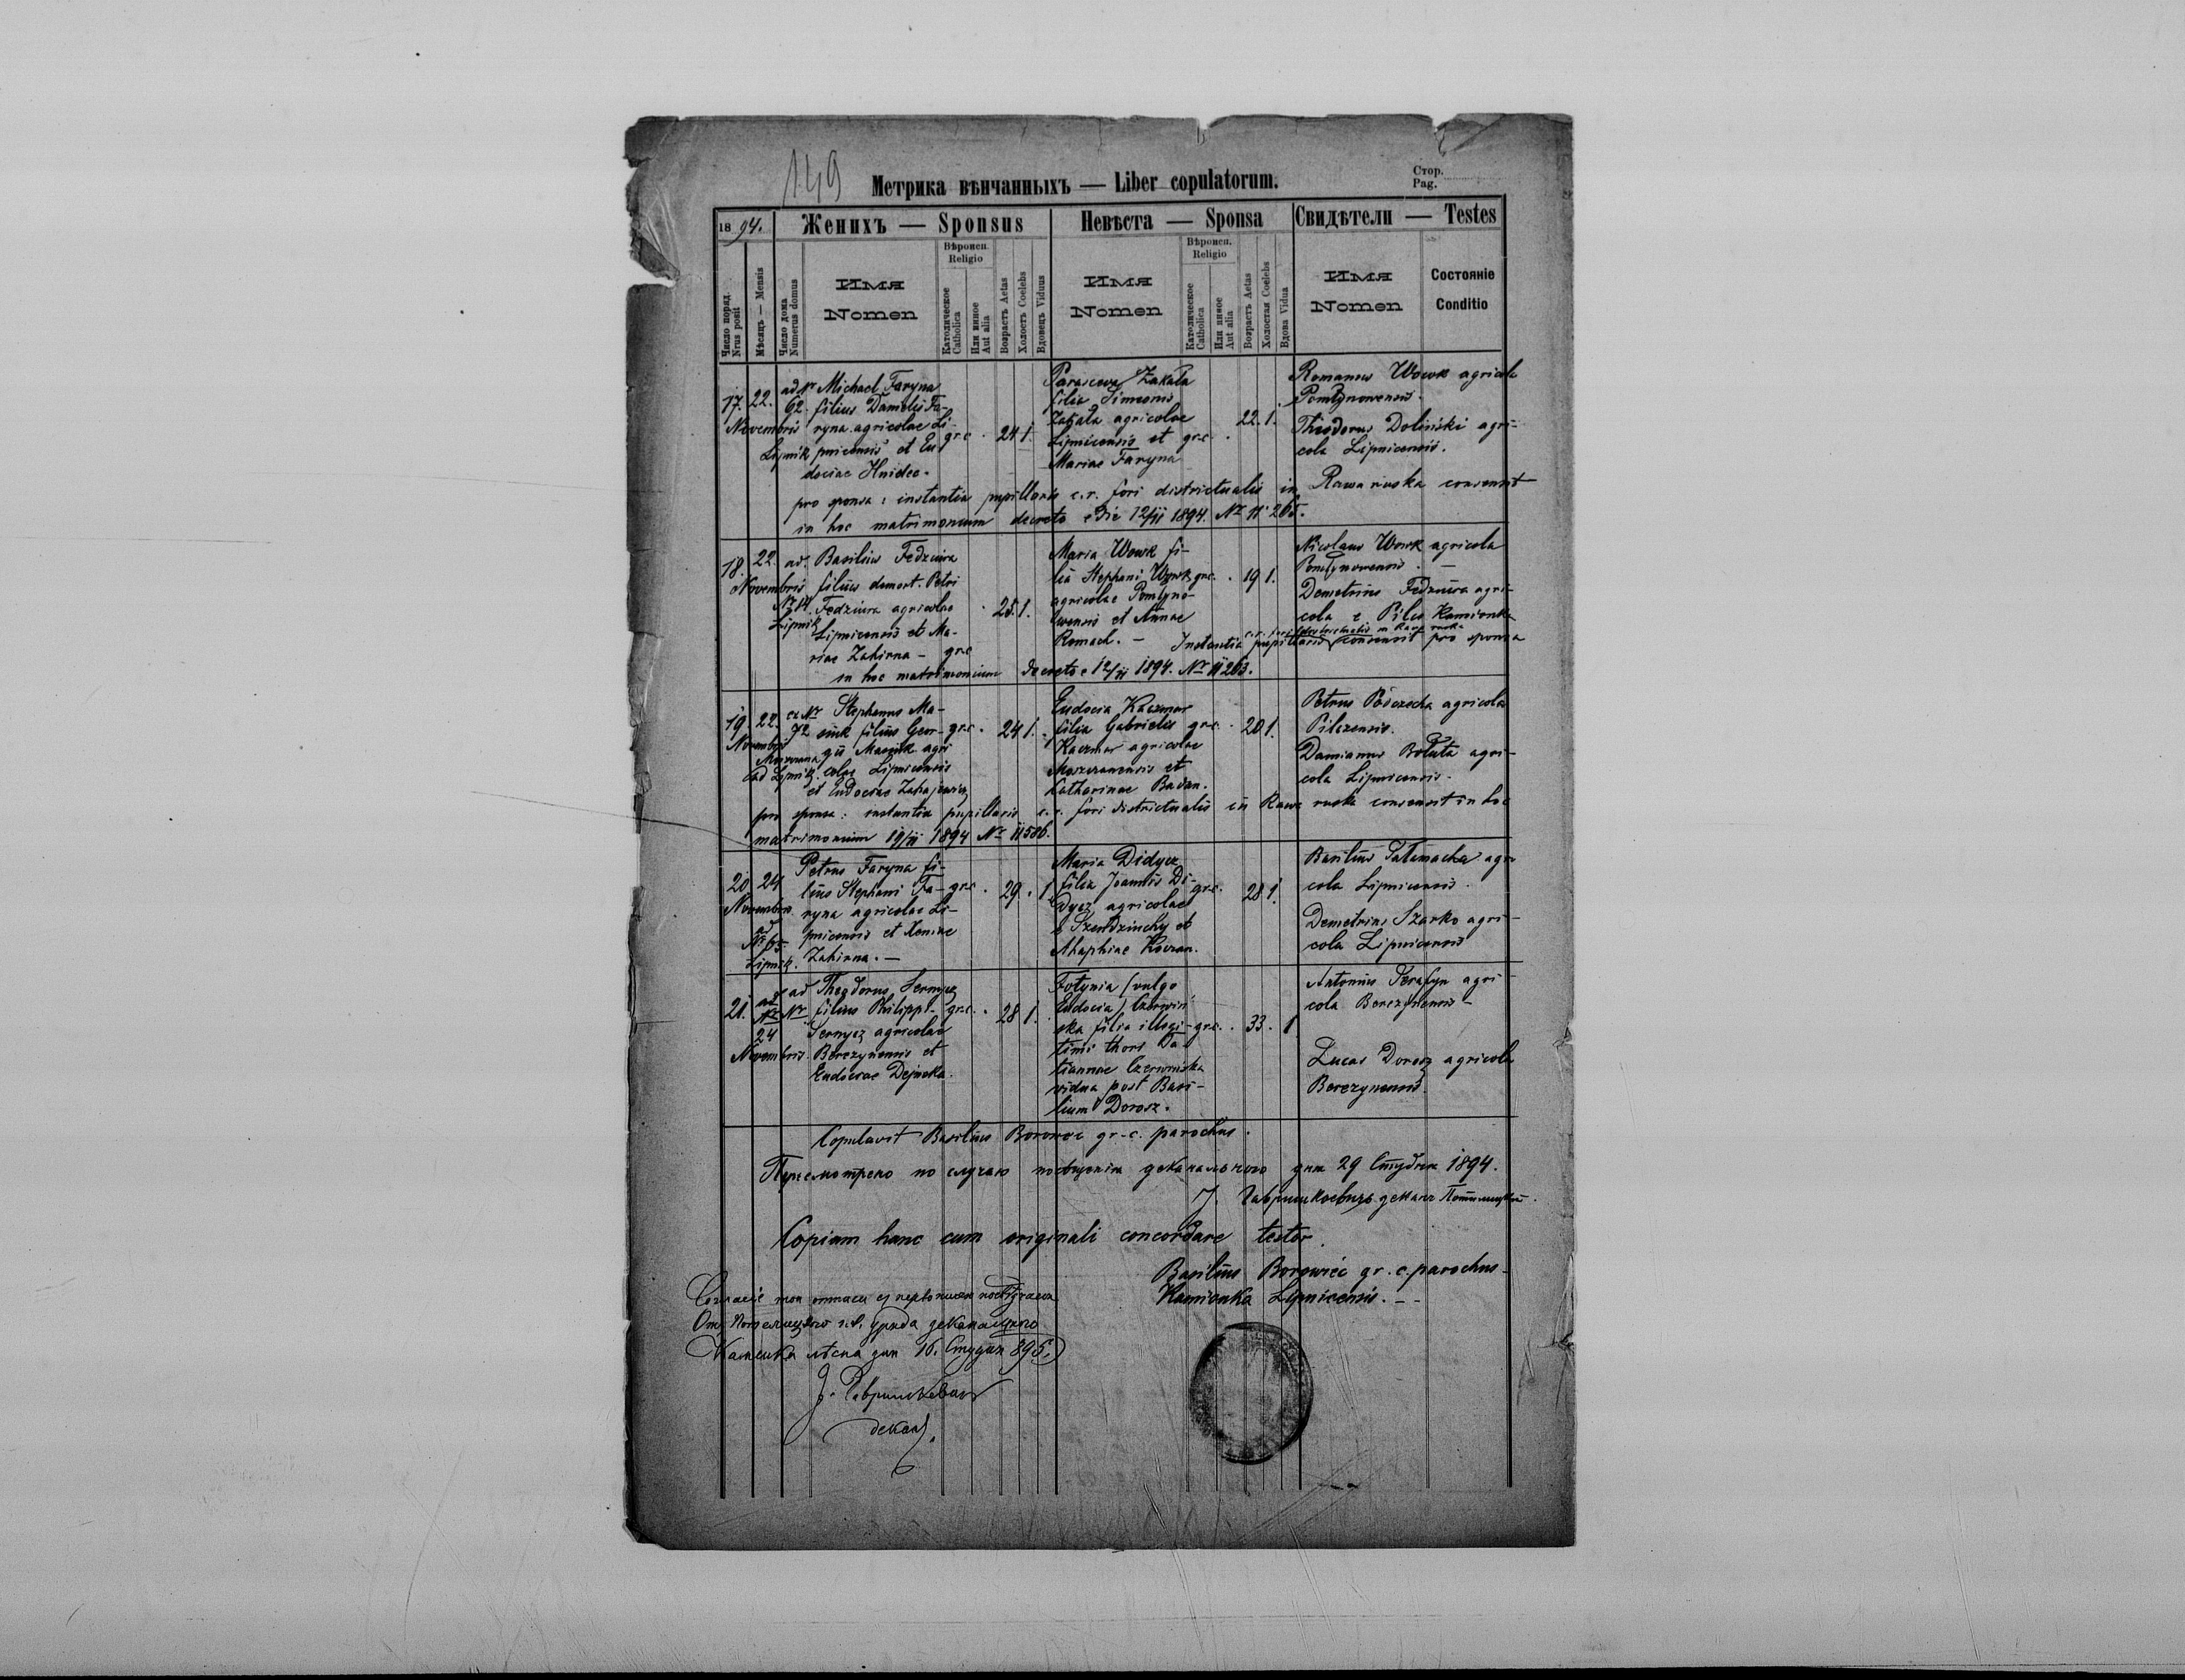 149
Метрика вѣнчанныхъ — Liber copulatorum.
Стор.
Pag.
1894.
Женихъ — Sponsus
Невѣста — Sponsa
Свидѣтели — Testes
Число поряд. Nrus posit
Мѣсяцъ — Mensis
Число дома Numerus domus
Имя
Nomen
Вѣроисп.
Religio
Католическое Catholica
Или иное Aut alia
Возрастъ Aetas
Холостъ Coelebs
Вдовецъ Viduus
Имя
Nomen
Вѣроисп.
Religio
Католическое Catholica
Или иное Aut alia
Возрастъ Aetas
Холостая Coelebs
Вдова Vidua
Имя
Nomen
Состояніе
Conditio
17. 22. Novembris
ad Nr 62. Lipnik
Michael Faryna
filius Danielis Fa-
ryna agricolae Li-
pnicensis et Eu-
dociae Hnidec.
gr.c. 24 1.
Parascewa Zakala
filia Simeonis
Zakala agricolae
Lipnicensis et
Mariae Faryna
gr.c. 22. 1.
Romanus Wowk agricola
Pomlynowensis.
Theodorus Doliński agri-
cola Lipnicensis.
pro sponsa: instantia pupillaris c.r. fori districtualis in Rawa ruska consensit
in hoc matrimonium decreto e die 12/11 1894. Nr 11265.
18. 22. Novembris
ad Nr 14. Lipnik
Basilius Fedziura
filius demort. Petri
Fedziura agricolae
Lipnicensis et Ma-
riae Zahirna - gr.c
25. 1.
Maria Wowk fi-
lia Stephani Wowk
agricolae Pomlyno-
wensis et Annae
Romach. -
gr.c. 19 1.
Nicolaus Wowk agricola
Pomlynowensis. -
Demetrius Fedziura agri-
cola e Pilce Kamionka
Instantia pupillaris c.r. fori districtualis in Rawa ruska consensit pro sponsa
in hoc matrimonium decreto e 12/11 1894. Nr 11263.
19. 22. Novembris
ex Nr 72
ad Lipnik
Stephanus Ma-
filius Geor-
gii agri-
colae Lipnicensis
et Eudociae
gr.c. 24 1.
Eudocia Kaczmar
filia Gabrielis
Kaczmar agricolae
et
Catharinae Badan.
gr.c. 20 1.
Petrus agricola
Pilczensis.
Damianus Boluta agri-
cola Lipnicensis.
pro sponsa: instantia pupillaris c.r. fori districtualis in Rawa ruska consensit in hoc
matrimonium 19/11 1894 Nr 11586.
20. 24 Novembris
ad Nr 65. Lipnik.
Petrus Faryna fi-
lius Stephani Fa-
ryna agricolae Li-
pnicensis et Xeniae
Zahirna. -
gr.c. 29. 1.
Maria Didycz
filia Joannis Di-
dycz agricolae
e et
Ahaphiae
gr.c. 28 1.
Basilius agri-
cola Lipnicensis.
Demetrius Szarko agri-
cola Lipnicensis
21. 24 Novembris.
ad Nr
Theodorus Sernycz
filius Philippi
Sernycz agricolae
Berezynensis et
Eudociae Dejneka.
gr.c. 28 1.
Fotynia (vulgo
Eudocia) Czerwiń-
ska filia illegi-
timi thori Ta-
tiannae Czerwińska
vidua post Basi-
lium Dorosz.
gr.c. 33. 1
Antonius agri-
cola Berezynensis -
Lucas Dorosz agricola
Berezynensis.
Copulavit Basilius Borowec gr.-c. parochus.
Пересмотрено по случаю посѣщенія деканального дня 29 Студня 1894.
деканъ
Copiam hanc cum originali concordare testor.
Basilius Borowiec gr.c. parochus
Kamionka Lipnicensis. --
Каменка лѣсна дня 16. Студня 895.
декан.